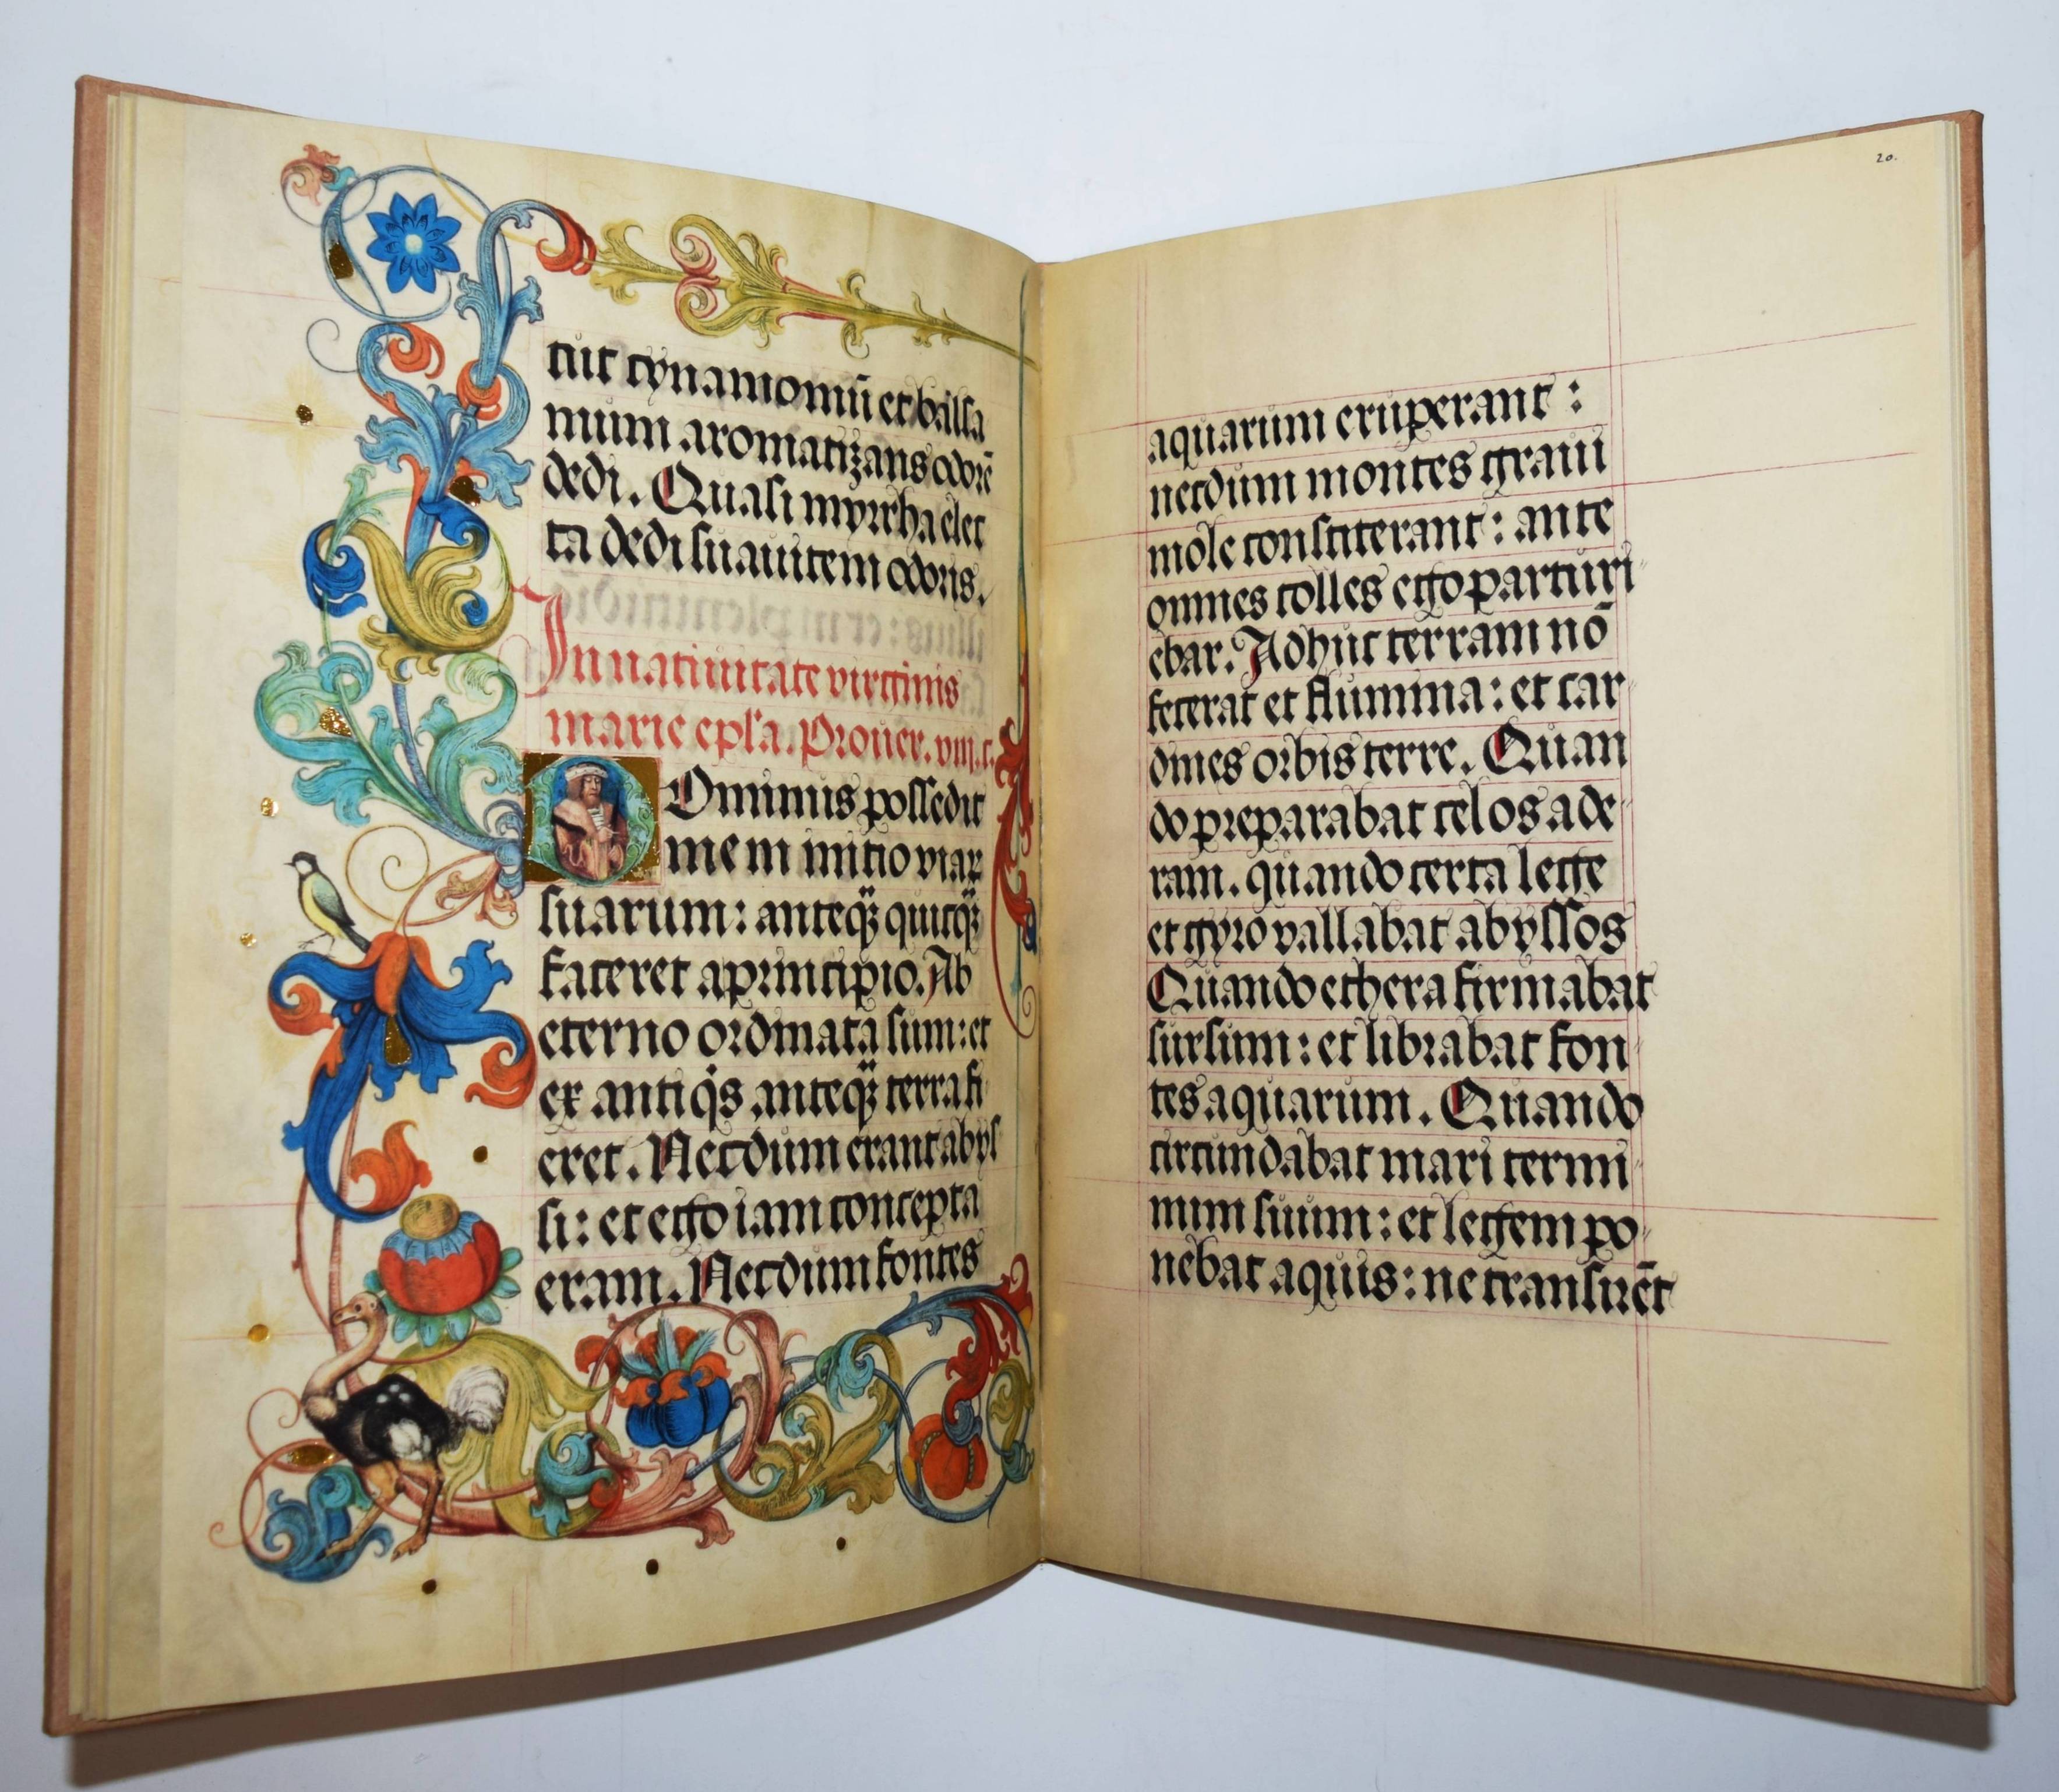 cut cynamomū et balsa
mum aromatizans odorē
dedi. Quasi myrrha elec
ta dedi suauitem odoris.
In natiuitate virginis
marie epl'a. Prouer. viij.c.
Dominus possedit
me in initio viaꝝ
suarum: anteqꝫ quicqꝫ
faceret a principio. Ab
eterno ordinata sum: et
ex antiqͥs anteqꝫ terra fi
eret. Necdum erant abys
si: et ego iam concepta
eram. Necdum fontes
20.
aquarum eruperant:
necdum montes graui
mole constiterant: ante
omnes colles ego parturi-
ebar. Adhuc terram nō
fecerat et flumina: et car-
dines orbis terre. Quan
do preparabat celos ade-
ram. quando certa lege
et gyro vallabat abyssos
Quando ethera firmabat
sursum: et librabat fon-
tes aquarum. Quando
circundabat mari termi-
num suum: et legem po-
nebat aquis: ne transirēt